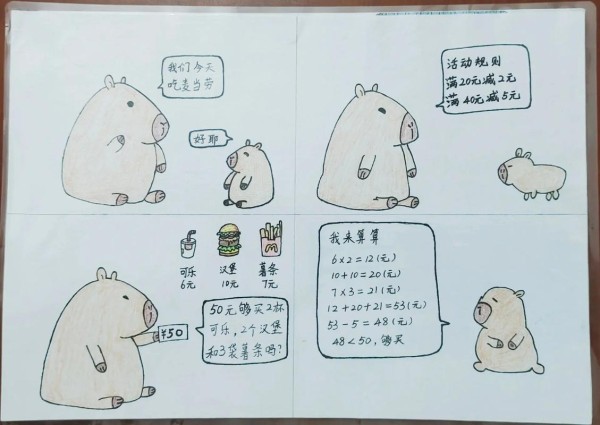 我们今天
吃麦当劳
好耶
活动规则
满20元减2元
满40元减5元
可乐
6元
汉堡
10元
薯条
7元
¥50
50元够买2杯
可乐，2个汉堡
和3袋薯条吗？
我来算算
6×2=12(元)
10+10=20(元)
7×3=21(元)
12+20+21=53(元)
53-5=48(元)
48<50，够买